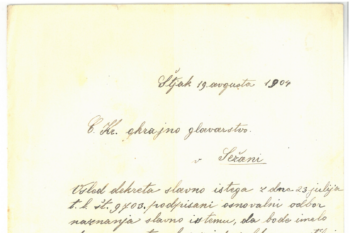 Štjak 19. avgusta 1904
C. Kr. okrajno glavarstvo
v
Sežani
Vsled dekreta slavno istega z dne 23. julija
t. l. št. 9703, podpisani osnovalni odbor
naznanja slavno istemu, da bode imelo